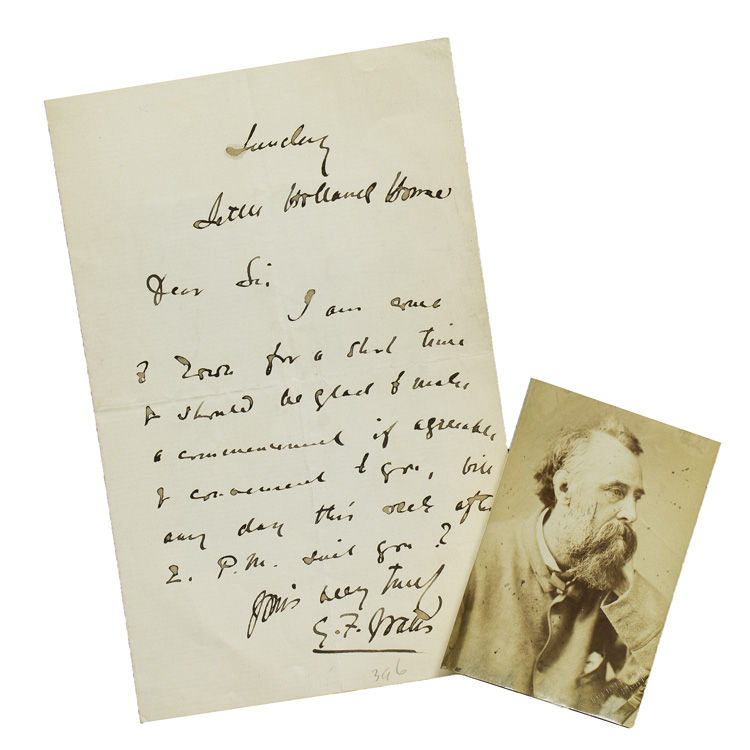 Sunday
Little Holland House
Dear Sir
I am come
to Town for a short time
& should be glad to make
a commencement if agreeable
& convenient to you, will
any day this week after
2. P.M. suit you?
Yours very truly
G. F. Watts
396